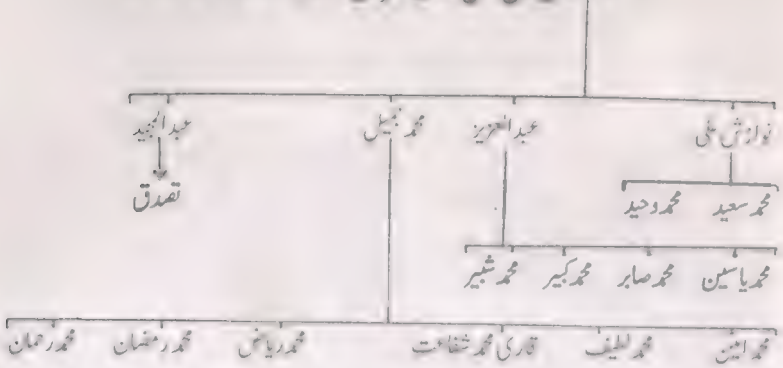 نوازش علی عبدالعزیز محمد جمیل عبدالمجید
محمد سعید محمد وحید تصدق
محمد یاسین محمد صابر محمد کبیر محمد شبیر
محمد امین محمد لطیف قاری محمد شفاعت محمد ریاض محمد رمضان محمد رحمان